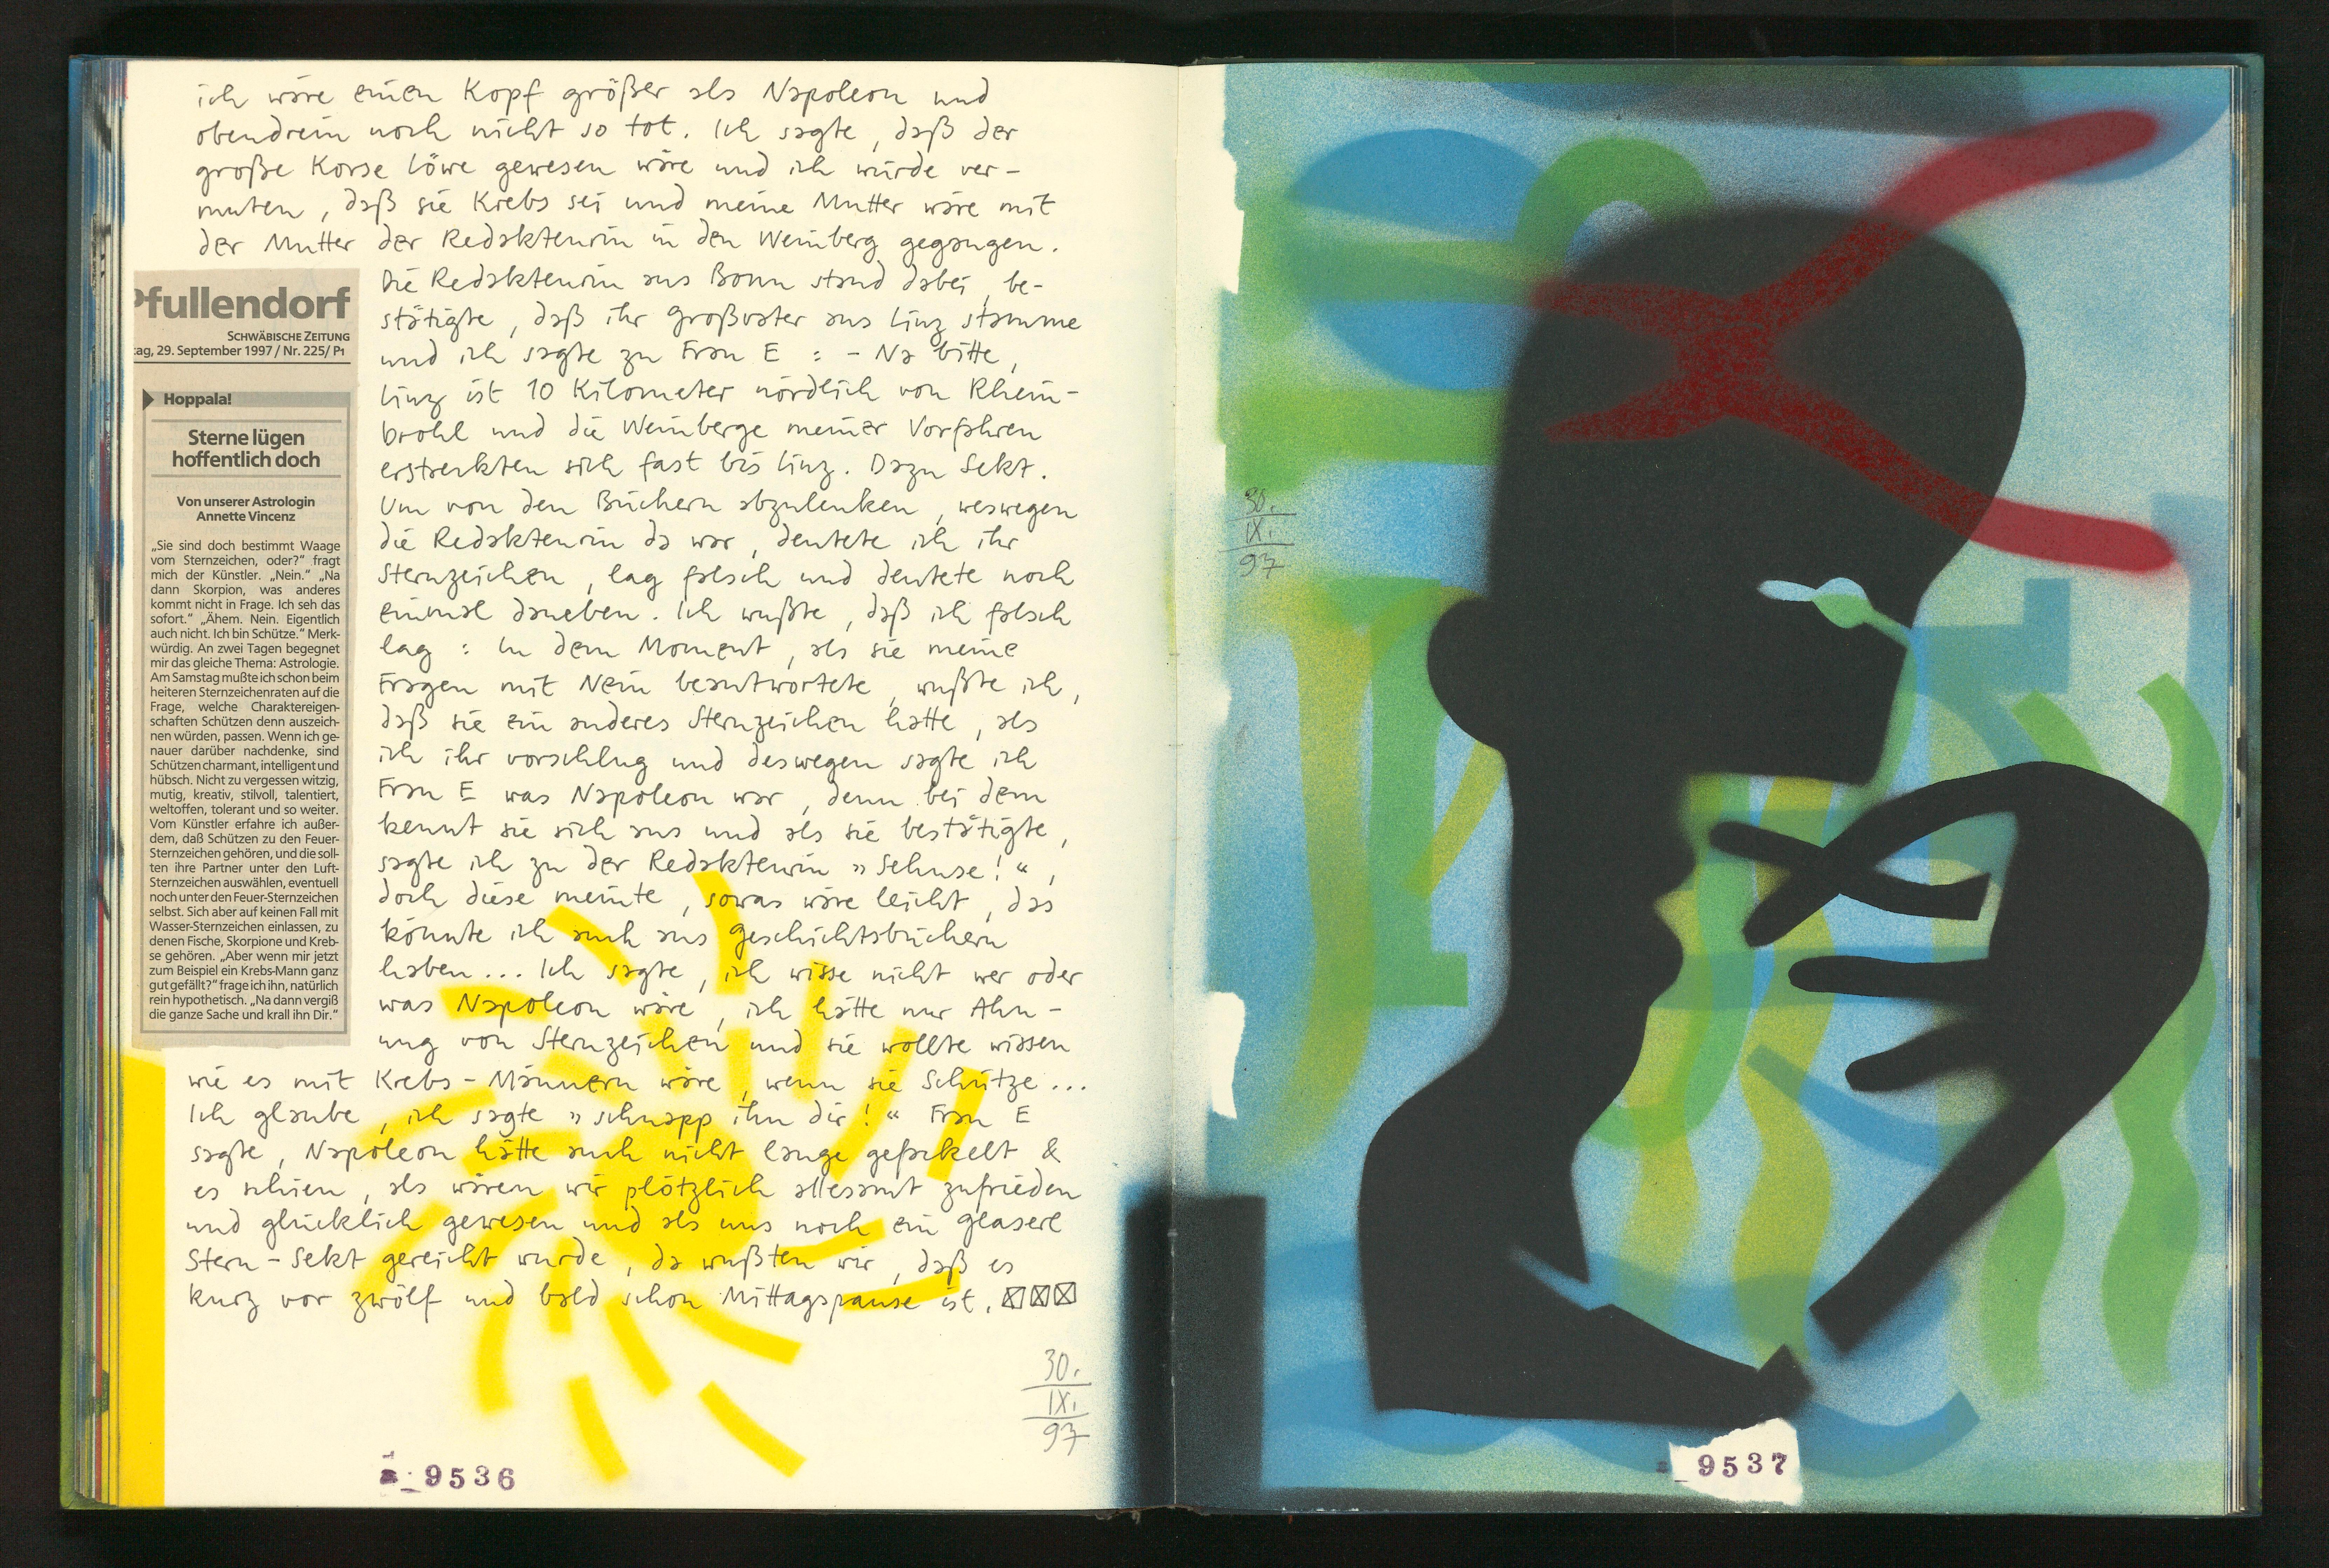 ich wäre einen Kopf größer als Napoleon und
obendrein noch nicht so tot. Ich sagte, daß der
große Korse Löwe gewesen wäre und ich würde ver-
muten, daß sie Krebs sei und meine Mutter wäre mit
der Mutter der Redakteurin in den Weinberg gegangen.
Die Redakteurin aus Bonn stand dabei, be-
stätigte, daß ihr Großvater aus Linz stamme
und ich sagte zu Frau E : - Na bitte,
Linz ist 10 Kilometer nördlich von Rhein-
brohl und die Weinberge meiner Vorfahren
erstreckten sich fast bis Linz. Dazu Sekt.
Um von den Büchern abzulenken, weswegen
die Redakteurin da war, deutete ich ihr
Sternzeichen, lag falsch und deutete noch
einmal daneben. Ich wußte, daß ich falsch
lag : In dem Moment, als sie meine
Fragen mit Nein beantwortete, wußte ich,
daß sie ein anderes Sternzeichen hatte, als
ich ihr vorschlug und deswegen sagte ich
Frau E was Napoleon war, denn bei dem
kennt sie sich aus und als sie bestätigte,
sagte ich zu der Redakteurin »Sehnse!“,
doch diese meinte, sowas wäre leicht, das
könnte ich auch aus Geschichtsbüchern
haben... Ich sagte, ich wisse nicht wer oder
was Napoleon wäre, ich hätte nur Ahn-
ung von Sternzeichen und sie wollte wissen
wie es mit Krebs-Männern wäre, wenn sie Schütze...
Ich glaube, ich sagte »schnapp ihn dir!“ Frau E
sagte, Napoleon hätte auch nicht lange gefackelt &
es schien, als wären wir plötzlich allesamt zufrieden
und glücklich gewesen und als uns noch ein Glaserl
Stern-Sekt gereicht wurde, da wußten wir, daß es
kurz vor zwölf und bald schon Mittagspause ist.
Pfullendorf
SCHWÄBISCHE ZEITUNG
tag, 29. September 1997 / Nr. 225/ P1
Hoppala!
Sterne lügen
hoffentlich doch
Von unserer Astrologin
Annette Vincenz
„Sie sind doch bestimmt Waage
vom Sternzeichen, oder?“ fragt
mich der Künstler. „Nein.“ „Na
dann Skorpion, was anderes
kommt nicht in Frage. Ich seh das
sofort.“ „Ähem. Nein. Eigentlich
auch nicht. Ich bin Schütze.“ Merk-
würdig. An zwei Tagen begegnet
mir das gleiche Thema: Astrologie.
Am Samstag mußte ich schon beim
heiteren Sternzeichenraten auf die
Frage, welche Charaktereigen-
schaften Schützen denn auszeich-
nen würden, passen. Wenn ich ge-
nauer darüber nachdenke, sind
Schützen charmant, intelligent und
hübsch. Nicht zu vergessen witzig,
mutig, kreativ, stilvoll, talentiert,
weltoffen, tolerant und so weiter.
Vom Künstler erfahre ich außer-
dem, daß Schützen zu den Feuer-
Sternzeichen gehören, und die soll-
ten ihre Partner unter den Luft-
Sternzeichen auswählen, eventuell
noch unter den Feuer-Sternzeichen
selbst. Sich aber auf keinen Fall mit
Wasser-Sternzeichen einlassen, zu
denen Fische, Skorpione und Kreb-
se gehören. „Aber wenn mir jetzt
zum Beispiel ein Krebs-Mann ganz
gut gefällt?“ frage ich ihn, natürlich
rein hypothetisch. „Na dann vergiß
die ganze Sache und krall ihn Dir.“
30.
IX.
97
9536
30.
IX.
97
9537